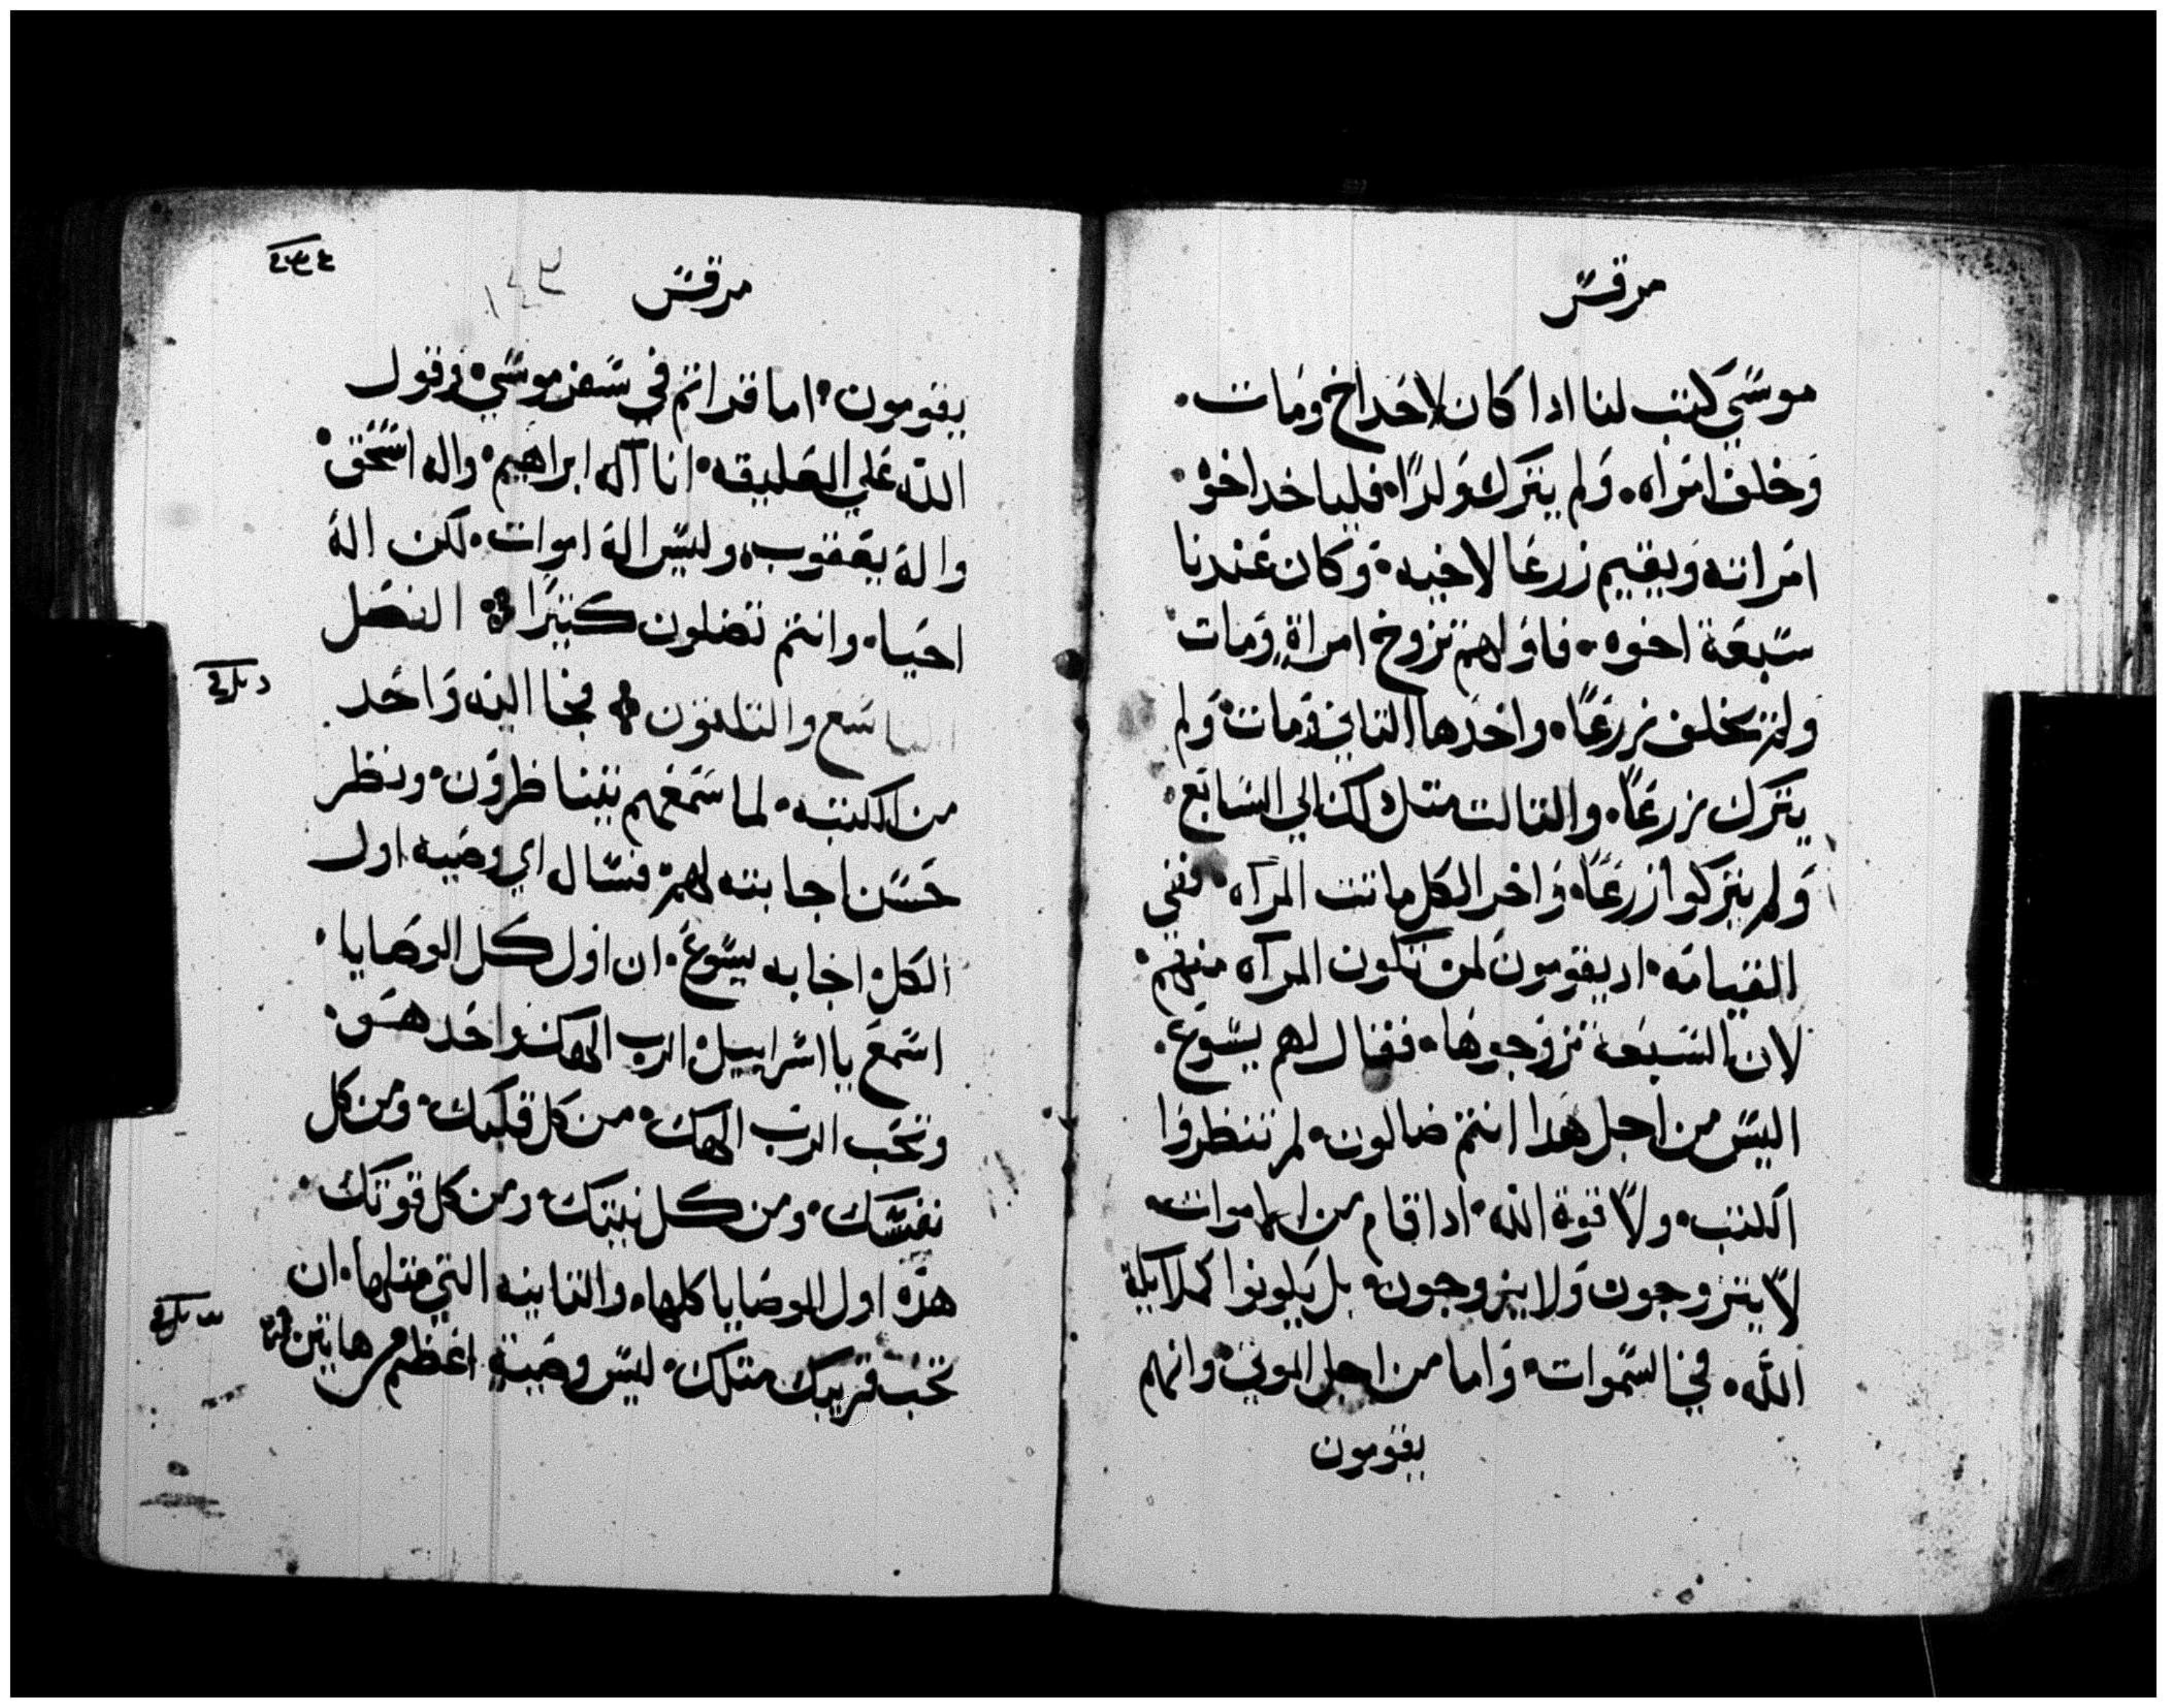 مرقس
موسي كتب لنا ادا كان لاحد اخ ومات.
وخلف امراه. ولم يترك ولدًا. فلياخد اخوه
امراته ويقيم زرعا لاخيه. وكان عندنا
سبعة اخوه. فاولهم تزوج امراةٍ ومات
ولم يخلف زرعًا. واخدها التاني ومات ولم
يترك زرعًا. والتالت متل دلك الي السابع.
ولم يتركوا زرعًا. واخر الكل ماتت المرآه. ففي
القيامه. اد يقومون لمن تكون المرآه منهم.
لان السبعه تزوجوها. فقال لهم يسوع.
اليس من اجل هدا انتم ضالون. لم تنظروا
الكتب. ولا قوة الله. ادا قام من الاموات
لا يتزوجون ولا يزوجون. بل يكونوا كملايكة
الله. في السموات. واما من اجل الموتي. وانهم
يقومون
مرقس
١٤٣
يقومون. اما قراتم في سفر موسي. قول
الله علي العليقه. انا آله ابراهيم. واله اسحق.
واله يعقوب. وليس اله اموات. لكن اله
احيا. وانتم تضلون كتيرًا. الفصل
التاسع والتلتون فجا اليه واحد
من الكتبه. لما سمعهم يتناظرون. ونظر
حسن اجابته لهم. فسال اي وصيه اول
الكل. اجابه يسوع. ان اول كل الوصايا.
اسمع يا اسراييل. الرب الهك واحد هو.
وتحب الرب الهك. من كل قلبك. ومن كل
نفسك. ومن كل نيتك. ومن كل قوتك.
هده اول الوصايا كلها. والتانيه التي متلها. ان
تحب قريبك متلك. ليس وصيةٍ اعظم من هاتين